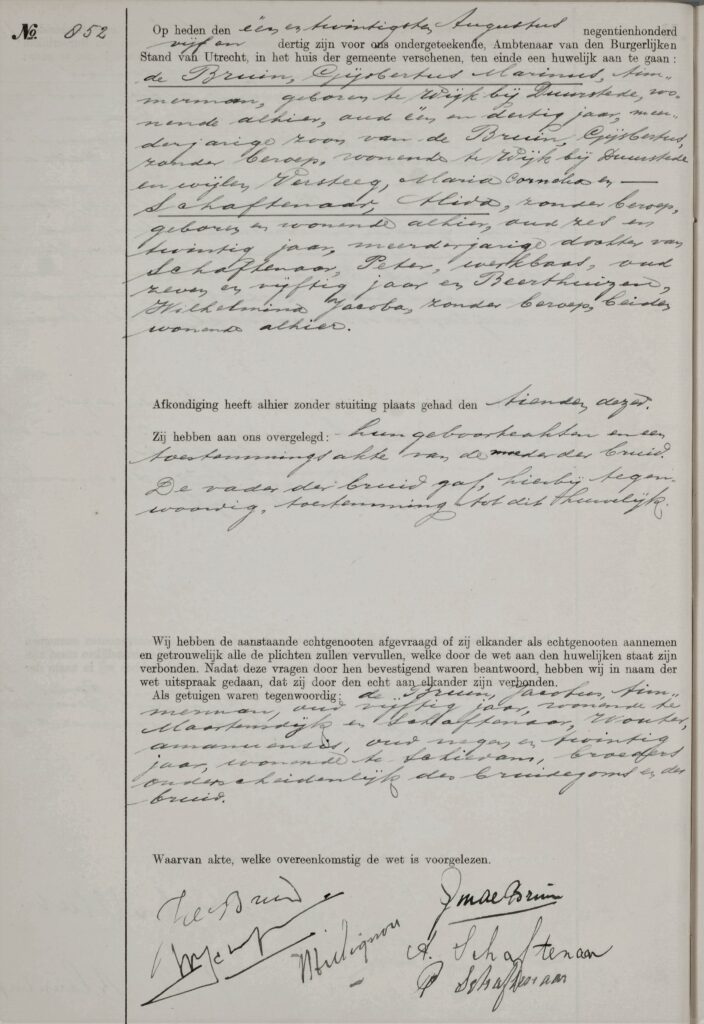 No. 852
Op heden den één en twintigsten Augustus negentienhonderd
vijf en dertig zijn voor ons ondergeteekende, Ambtenaar van den Burgerlijken
Stand van Utrecht, in het huis der gemeente verschenen, ten einde een huwelijk aan te gaan:
de Bruin, Gijsbertus Marinus, tim-
merman, geboren te Wijk bij Duurstede, wo-
nende alhier, oud één en dertig jaar, meer-
derjarige zoon van de Bruin, Gijsbertus,
zonder beroep, wonende te Wijk bij Duurstede
en wijlen Versteeg, Maria Cornelia en
Schaftenaar, Alida, zonder beroep,
geboren en wonende alhier, oud zes en
twintig jaar, meerderjarige dochter van
Schaftenaar, Peter, werkbaas, oud
zeven en vijftig jaar en Beerthuizen,
Wilhelmina Jacoba, zonder beroep, beiden
wonende alhier.
Afkondiging heeft alhier zonder stuiting plaats gehad den tienden dezer.
Zij hebben aan ons overgelegd: hun geboorteakten en een
toestemmingsakte van de moeder der bruid.
De vader der bruid gaf, hierbij tegen-
woordig, toestemming tot dit huwelijk.
Wij hebben de aanstaande echtgenooten afgevraagd of zij elkander als echtgenooten aannemen
en getrouwelijk alle de plichten zullen vervullen, welke door de wet aan den huwelijken staat zijn
verbonden. Nadat deze vragen door hen bevestigend waren beantwoord, hebben wij in naam der
wet uitspraak gedaan, dat zij door den echt aan elkander zijn verbonden.
Als getuigen waren tegenwoordig: de Bruin, Jacobus, tim-
merman, oud vijftig jaar, wonende te
Maartensdijk en Schaftenaar, Wouter,
amanuensis, oud negen en twintig
jaar, wonende te Schiedam, broeders
onderscheidenlijk des bruidegoms en der
bruid.
Waarvan akte, welke overeenkomstig de wet is voorgelezen.
de Bruin
A. Schaftenaar
P Schaftenaar